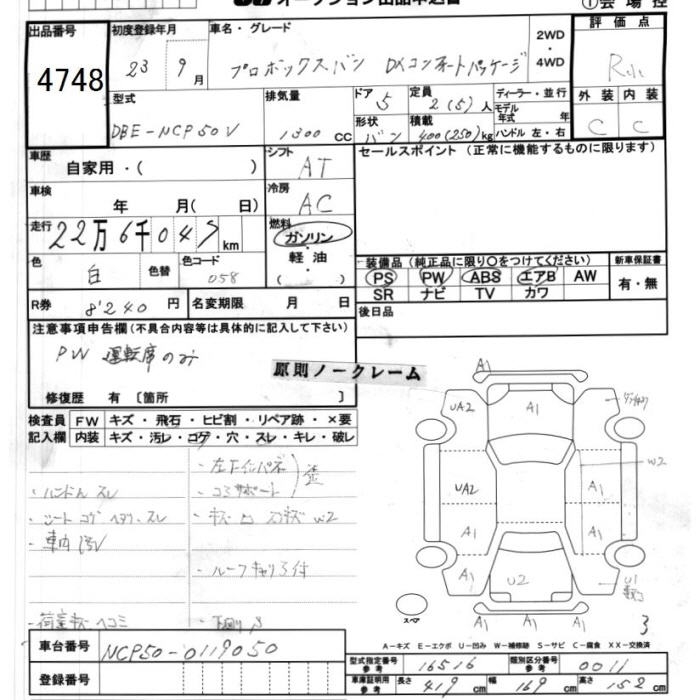 出品番号 4748
初度登録年月 23 9月
車名・グレード プロボックスバン DXコンフォートパッケージ
2WD・4WD
評価点
型式 DBE-NCP50V
排気量 1300 CC
ドア 5
定員 2(5)人
ディーラー・並行
モデル年式 年式
形状 バン
積載 400(250)kg
ハンドル 左・右
外装 C
内装 C
車歴 自家用・( )
シフト AT
セールスポイント(正常に機能するものに限ります)
車検 年 月( 日)
冷房 AC
走行 22万6千045km
燃料 ガソリン・軽油・( )
色 白 色替
色コード 058
装備品(純正品に限り○をつけてください)
PS PW ABS エアB AW
SR ナビ TV カワ
新車保証書 有・無
R券 8'240 円
名変期限 月 日
後日品
注意事項申告欄(不具合内容等は具体的に記入して下さい)
PW 運転席のみ
原則ノークレーム
修復歴 有 [箇所 ]
検査員記入欄
FW キズ・飛石・ヒビ割・リペア跡・×要
内装 キズ・汚レ・コゲ・穴・スレ・キレ・破レ
・ハンドルスレ
・シートコゲ ヘタリ、スレ
・車内汚レ
・コアサポート
W2
・ルーフキャリア付
・荷室 ヘコミ
・下回りサ
A1
UA2
A1
W2
UA2
A1
A1
A1
A1
A1
U2
U1
スペア
A1
A1
3
A-キズ E-エクボ U-凹み W-補修跡 S-サビ C-腐食 XX-交換済
車台番号 NCP50-0119050
登録番号
型式指定番号 参考 16516
類別区分番号 参考 0011
車庫証明用 参考 長さ 419cm 幅 169cm 高さ 152cm